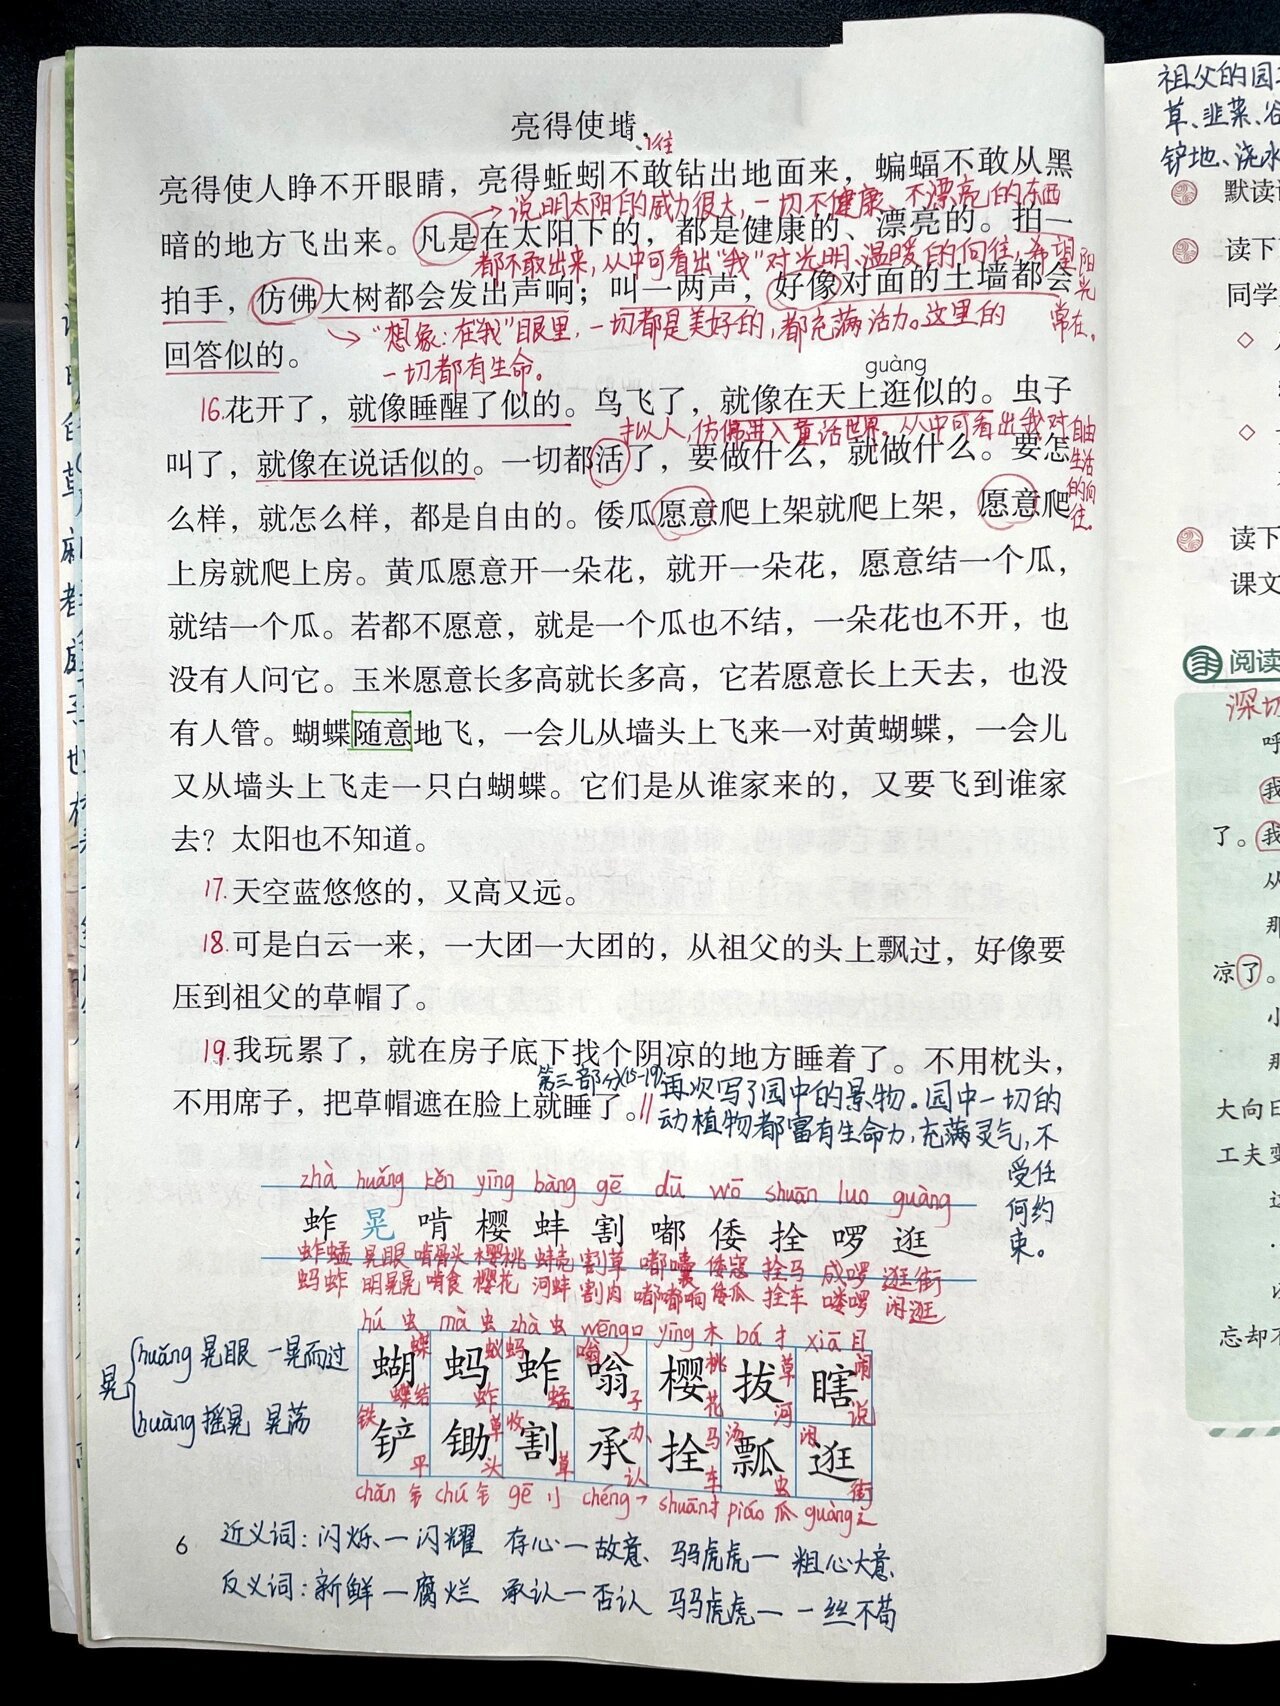 亮得使
亮得使人睁不开眼睛，亮得蚯蚓不敢钻出地面来，蝙蝠不敢从黑
说明太阳的威力很大，一切不健康、不漂亮的东西
暗的地方飞出来。凡是在太阳下的，都是健康的、漂亮的。拍一
都不敢出来，从中可看出“我”对光明、温暖的向往，希望阳光常在。
拍手，仿佛大树都会发出声响；叫一两声，好像对面的土墙都会
想象：在“我”眼里，一切都是美好的，都充满活力。这里的
回答似的。
一切都有生命。
guàng
16.花开了，就像睡醒了似的。鸟飞了，就像在天上逛似的。虫子
拟人，仿佛进入童话世界。从中可看出我对自由生活的向往。
叫了，就像在说话似的。一切都活了，要做什么，就做什么。要怎
么样，就怎么样，都是自由的。倭瓜愿意爬上架就爬上架，愿意爬
上房就爬上房。黄瓜愿意开一朵花，就开一朵花，愿意结一个瓜，
就结一个瓜。若都不愿意，就是一个瓜也不结，一朵花也不开，也
没有人问它。玉米愿意长多高就长多高，它若愿意长上天去，也没
有人管。蝴蝶随意地飞，一会儿从墙头上飞来一对黄蝴蝶，一会儿
又从墙头上飞走一只白蝴蝶。它们是从谁家来的，又要飞到谁家
去？太阳也不知道。
17.天空蓝悠悠的，又高又远。
18.可是白云一来，一大团一大团的，从祖父的头上飘过，好像要
压到祖父的草帽了。
19.我玩累了，就在房子底下找个阴凉的地方睡着了。不用枕头，
不用席子，把草帽遮在脸上就睡了。
第三部分(15-19):再次写了园中的景物。园中一切的
动植物都富有生命力，充满灵气，不
受任
何约
束。
zhà huǎng kěn yīng bàng gē dū wō shuān luo guàng
蚱 晃 啃 樱 蚌 割 嘟 倭 拴 啰 逛
蚱蜢 晃眼 啃骨头 樱桃 蚌壳 割草 嘟囔 倭寇 拴马 成啰 逛街
蚂蚱 明晃晃 啃食 樱花 河蚌 割肉 嘟嘟响 倭瓜 拴车 喽啰 闲逛
hú 虫 mà 虫 zhà 虫 wēng 口 yīng 木 bá 扌 xiā 目
蝴 蚂 蚱 嗡 樱 拔 瞎
铲 锄 割 承 拴 瓢 逛
chǎn 钅 chú 钅 gē 刂 chéng 乛 shuān 扌 piáo 瓜 guàng 辶
晃
huǎng 晃眼 一晃而过
huàng 摇晃 晃荡
6
近义词：闪烁—闪耀 存心—故意 马马虎虎—粗心大意
反义词：新鲜—腐烂 承认—否认 马马虎虎—一丝不苟
祖父的园
草、韭菜、谷
铲地、浇水
默读
读下
同学
读下
课文
阅读
深切
呼
我
了。我
从
那
凉了。
小
那
大向日
工夫变
忘却不